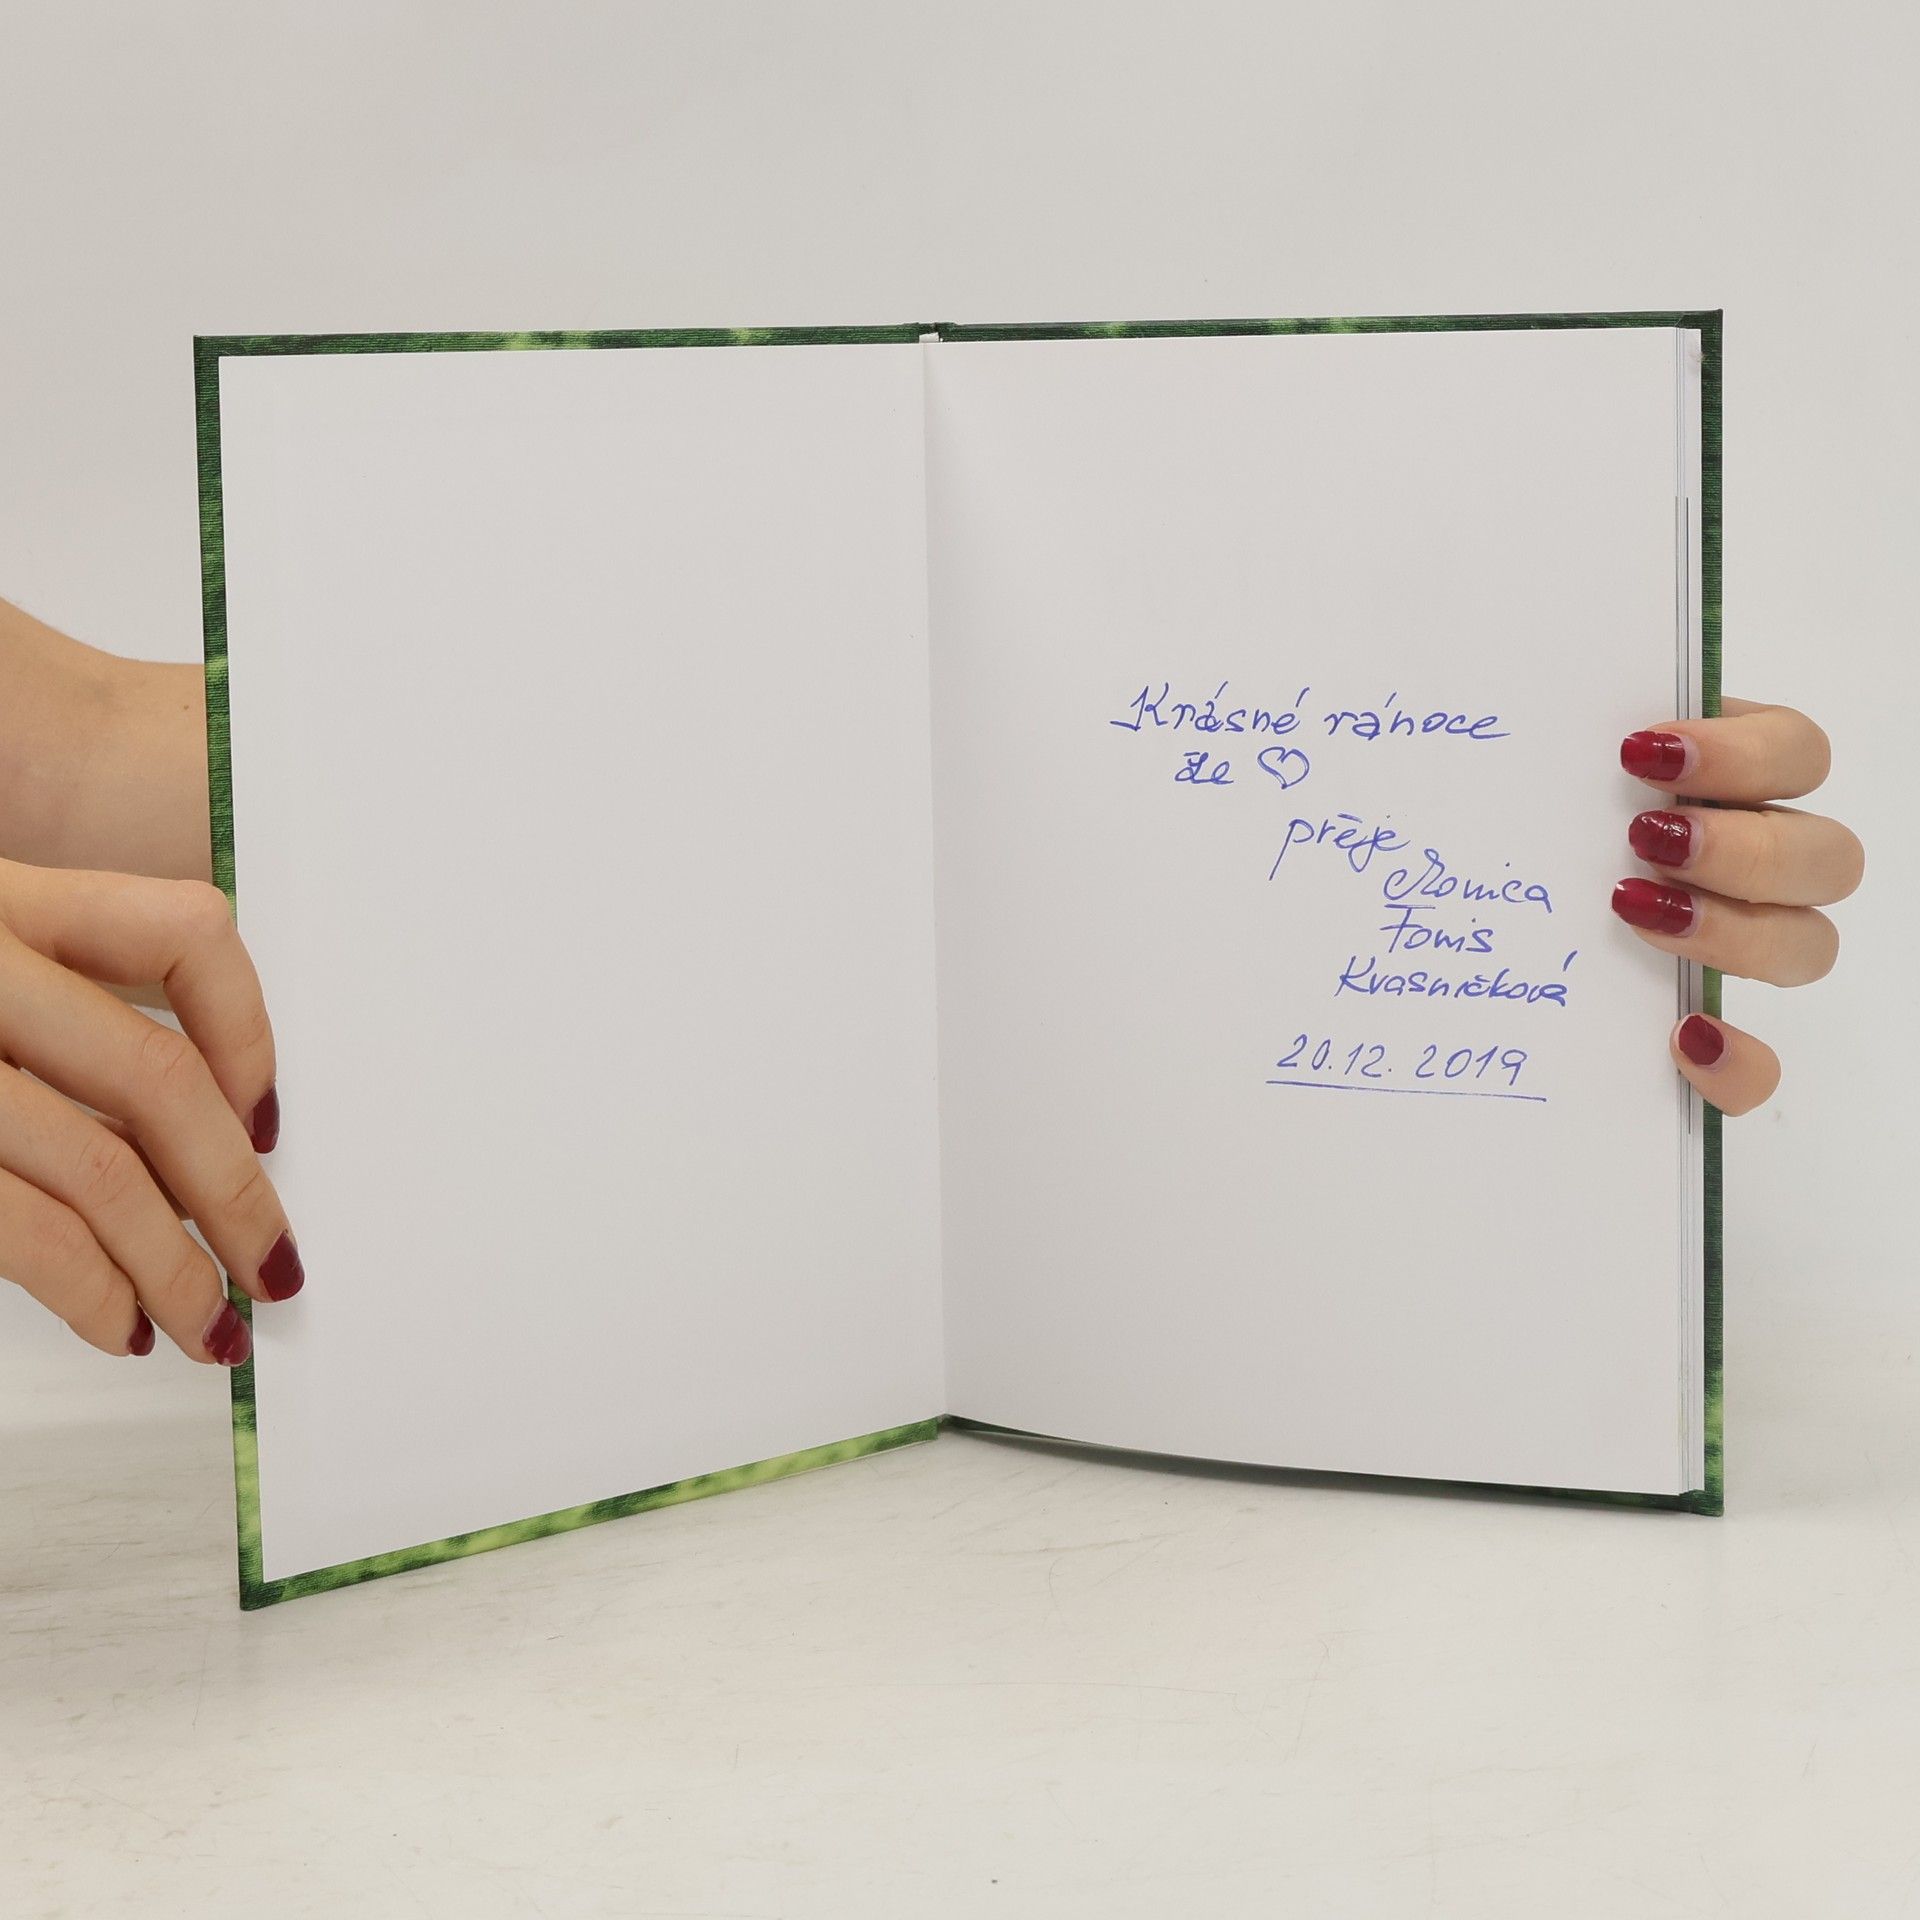 Krásné vánoce
ze ♡
přeje
Monica
Fonis
Kvasničková
20.12.2019